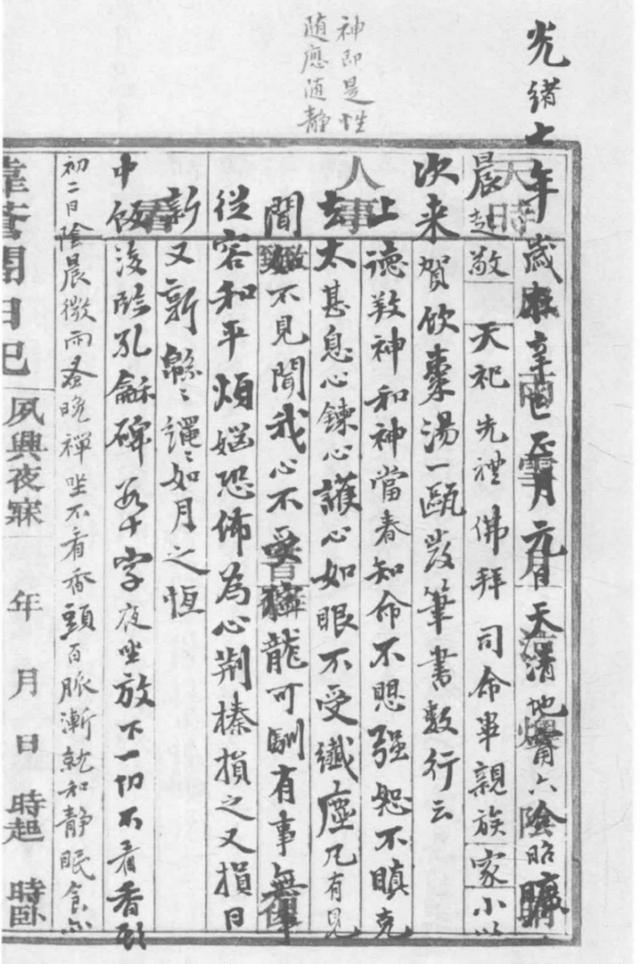 神即是性
随應随静
光緒七年歲在辛巳正月元日天清地甯六陰昭曠
晨起敬天祀先禮佛拜司命畢親族家小以
次来賀飲棗湯一甌發筆書數行云
上德敦神和神當春知命不愳强恕不瞋克
去太甚息心鍊心護心如眼不受纖塵凡有見
聞如不見聞我心不受獰龍可馴有事無事
從容和平煩惱恐怖為心荆榛損之又損日
新又新緜緜繩繩如月之恆
中飯後臨孔龢碑若干字夜坐放下一切不看香頭
初二日陰晨微雨蚤晚禪坐不看香頭百脈漸就和静眠食亦
日記
夙興夜寐 年 月 日 時起 時臥